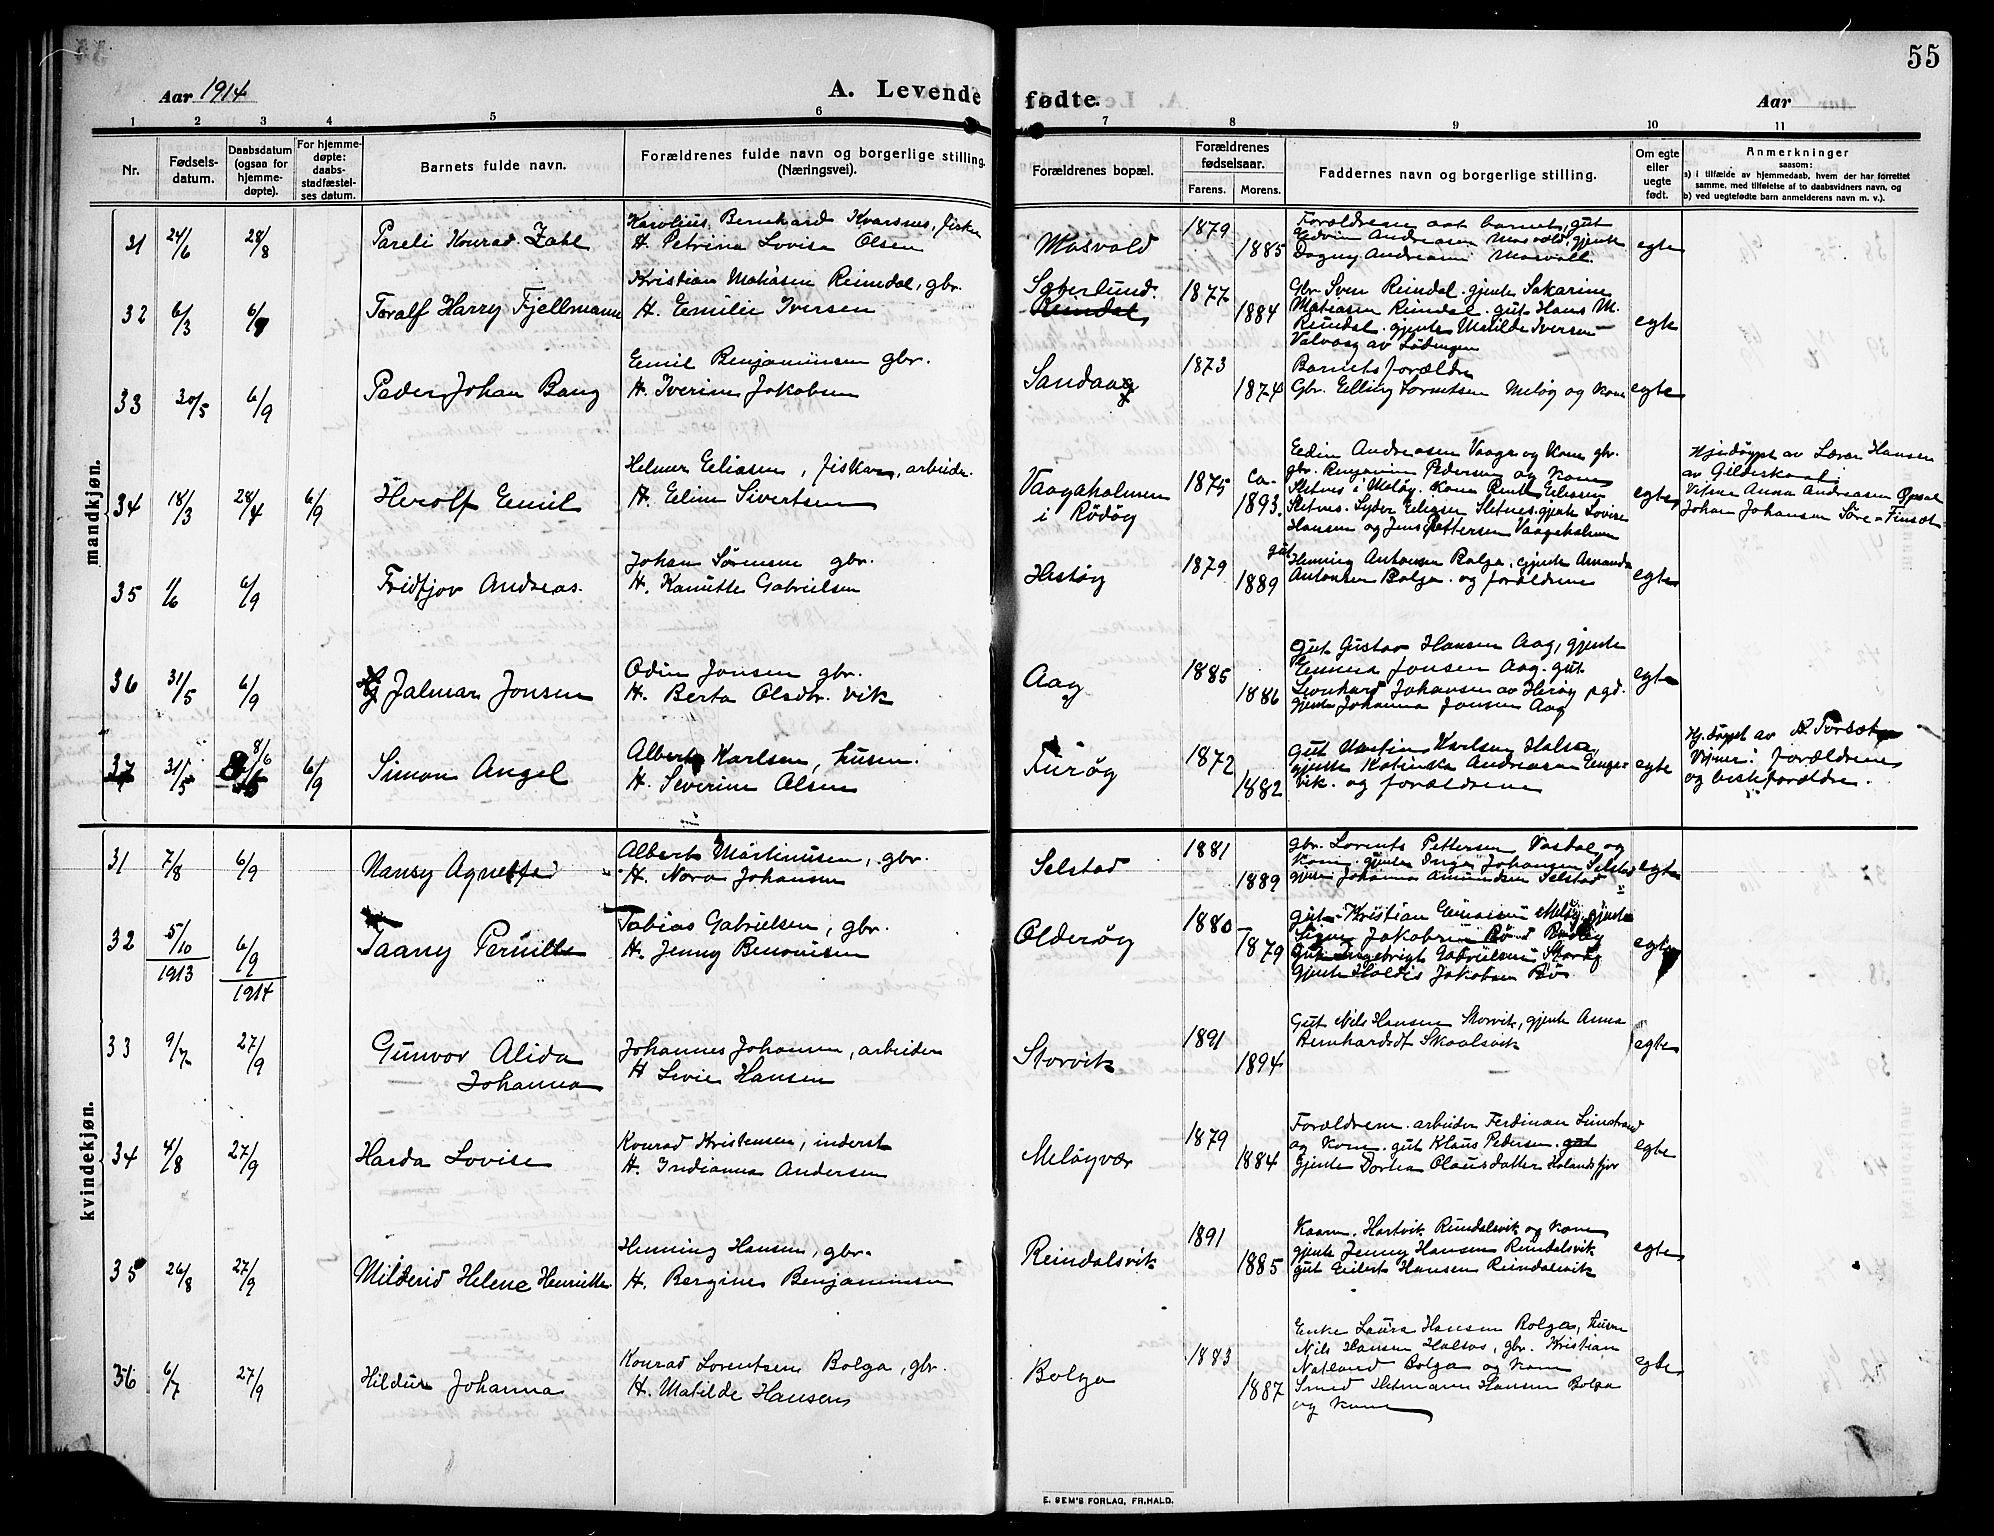 55
Aar 1914
A. Levende fødte.
Aar
1 2 3 4 5 6 7 8 9 10 11
Nr.
Fødsels-
datum.
Daabsdatum
(ogsaa for
hjemme-
døpte).
For hjemme-
døpte:
daabs-
stadfæstel-
ses datum.
Barnets fulde navn.
Forældrenes fulde navn og borgerlige stilling.
(Næringsvei).
Forældrenes bopæl.
Forældrenes
fødselsaar.
Farens. Morens.
Faddernes navn og borgerlige stilling.
Om egte
eller
uegte
født.
Anmerkninger
saasom:
a) i tilfælde av hjemmedaab, hvem der har forrettet
samme, med tilføielse af to daabsvidners navn, og
b) ved uegtefødte barn anmelderens navn m. v.).
mandkjøn.
31 24/6 28/8
Pareli Konrad Zahl
Karolius Bernhard Kvarsnes, fisker
H. Petrina Lovise Olsen
Mosvold
1879
1885
Forældrene aat barnet, gut
Edvin Andreasen Mosvold, gjente
Dagny Andreasen Mosvold
egte
32 6/3 6/9
Toralf Harry Fjellmann
Kristian Matiasen Reindal, gbr.
H. Emilie Iversen
Reindal
1877
1884
Gbr. Sven Reindal. gjente Sakarine
Matiasen Reindal. gut Hans M.
Reindal. gjente Matilde Iversen
Valvaag av Lødingen
egte
33 30/5 6/9
Peder Johan Bang
Emil Benjaminsen gbr.
H. Iverine Jakobsen
Sandaag
1873
1874
Barnets forældre
Gbr. Elling Lorentsen Meløy og kone
egte
34 18/3 28/4 6/9
Herolf Emil
Helmer Eliasen, fisker, arbeider.
H. Eline Sivertsen
Vaagaholmen
i Rødøy
1875
Ca.
1893.
Edin Andreasen Vaage og kone gbr.
gbr. Benjamin Pedersen og kone
Sletnes i Meløy. kone Eliasen
Sletnes. Eliasen Sletnes. gjente Lovise
Hansen og Jens Pettersen Vaagaholmen
egte
Hj.døypt av Lærer Hansen
av Gildeskaal
Vitner Anna Andreasen
Johan Johansen Søre-Finset
35 1/6 6/9
Fridtjov Andreas.
Johan Sørensen gbr.
H. Kanutte Gabrielsen
Hestøy
1879
1889
gut
Henning Antonsen Bolga, gjente Amanda
Antonsen Bolga. og forældrene
egte
36 31/5 6/9
Hjalmar Jonsen
Odin Jonsen gbr.
H. Berta Olsdtr. Vik
Aag
1885
1886
Gut Gustav Hansen Aag, gjente
Emma Jonsen Aag. gut
Leonhard Johansen av Herøy pgd.
gjente Johanna Jonsen Aag
egte
37 31/5 8/6 6/9
Simon Angel
Albert Karlsen, husm.
H. Severine Olsen
Furøy
1872
1882
Gut Martin Karlsen Halsa,
gjente Katinka Andreasen Enga-
vik. og forældrene
egte
Hj.døypt av A. Torset
Vitner: forældrene
og besteforældre.
kvindekjøn.
31 7/8 6/9
Nansy Agnette
Albert Martinusen, gbr.
H. Nora Johansen
Selstad
1881
1889
gbr. Lorents Pettersen Vasdal og
kone. gjente Inga Johansen Selstad
gjente Johanna Amundsen Selstad
egte
32 5/10 1913 6/9 1914
Taany Pernille
Tobias Gabrielsen, gbr.
H. Jenny Benonisen
Olderøy
1880
1879
gut Kristian Meløy. gjente
Signe Jakobsen Bø
Gut Ingebrigt Gabrielsen Støvøy
Gjente Haldis Jakobsen Bø
egte
33 9/7 27/9
Gunvor Alida
Johanna
Johannes Johansen, arbeider
H. Levie Hansen
Storvik
1891
1894
Gut Nils Hansen Storvik, gjente Anna
Bernhardsdt Skaalsvik
egte
34 4/8 27/9
Harda Lovise
Konrad Kristensen, inderst
H. Indianna Andersen
Meløyvær
1879
1884
Forældrene. arbeider Ferdinan Lunstrand
og kone. gut Klaus Pedersen. gut
Gjente Dortea Olausdatter Holandsfjor
egte
35 26/8 27/9
Milderid Helene Henriette
Henning Hansen, gbr.
H. Bergine Benjaminsen
Reindalsvik
1891
1885
Kaarm. Hartvik Reindalsvik og kone
gjente Jenny Hansen Reindalsvik
gut Eilert Hansen Reindalsvik
egte
36 6/7 27/9
Hildur Johanna
Konrad Lorentsen Bolga, gbr.
H. Matilde Hansen
Bolga
1883
1887
Enke Laura Hansen Bolga, husm
Nils Hansen Halsos, gbr. Kristian
Natland Bolga og kone
Smed Hetmann Hansen Bolga
og kone
egte
E. SEM'S FORLAG, FR.HALD.